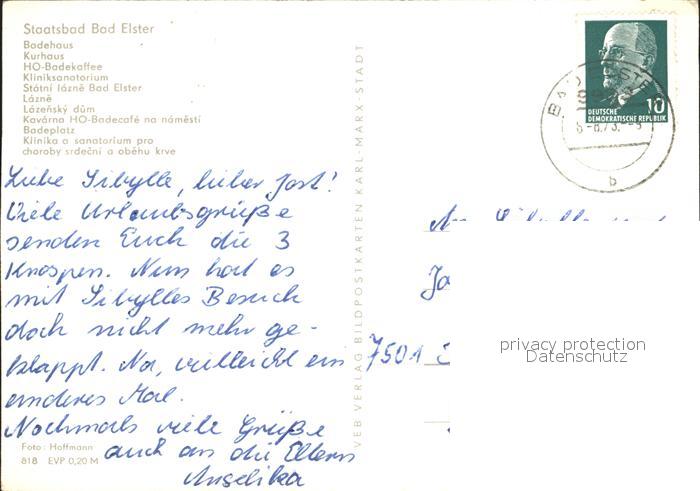 Staatsbad Bad Elster
Badehaus
Kurhaus
HO-Badekaffee
Kliniksanatorium
Státní lázně Bad Elster
Lázně
Lázeňský dům
Kavárna HO-Badecafé na náměstí
Badeplatz
Klinika a sanatorium pro
choroby srdeční a oběhu krve
Liebe Sibylle, lieber Jost!
Viele Urlaubsgrüße
senden Euch die 3
Knospen. Nun hat es
mit Sibylles Besuch
doch nicht mehr ge-
klappt. Na, vielleicht ein
anderes Mal.
Nochmals viele Grüße
auch an die Eltern
Angelika
Foto: Hoffmann
818 EVP 0,20 M
VEB VERLAG BILDPOSTKARTEN KARL-MARX-STADT
BAD ELSTER
b
10
DEUTSCHE
DEMOKRATISCHE REPUBLIK
7501
privacy protection
Datenschutz